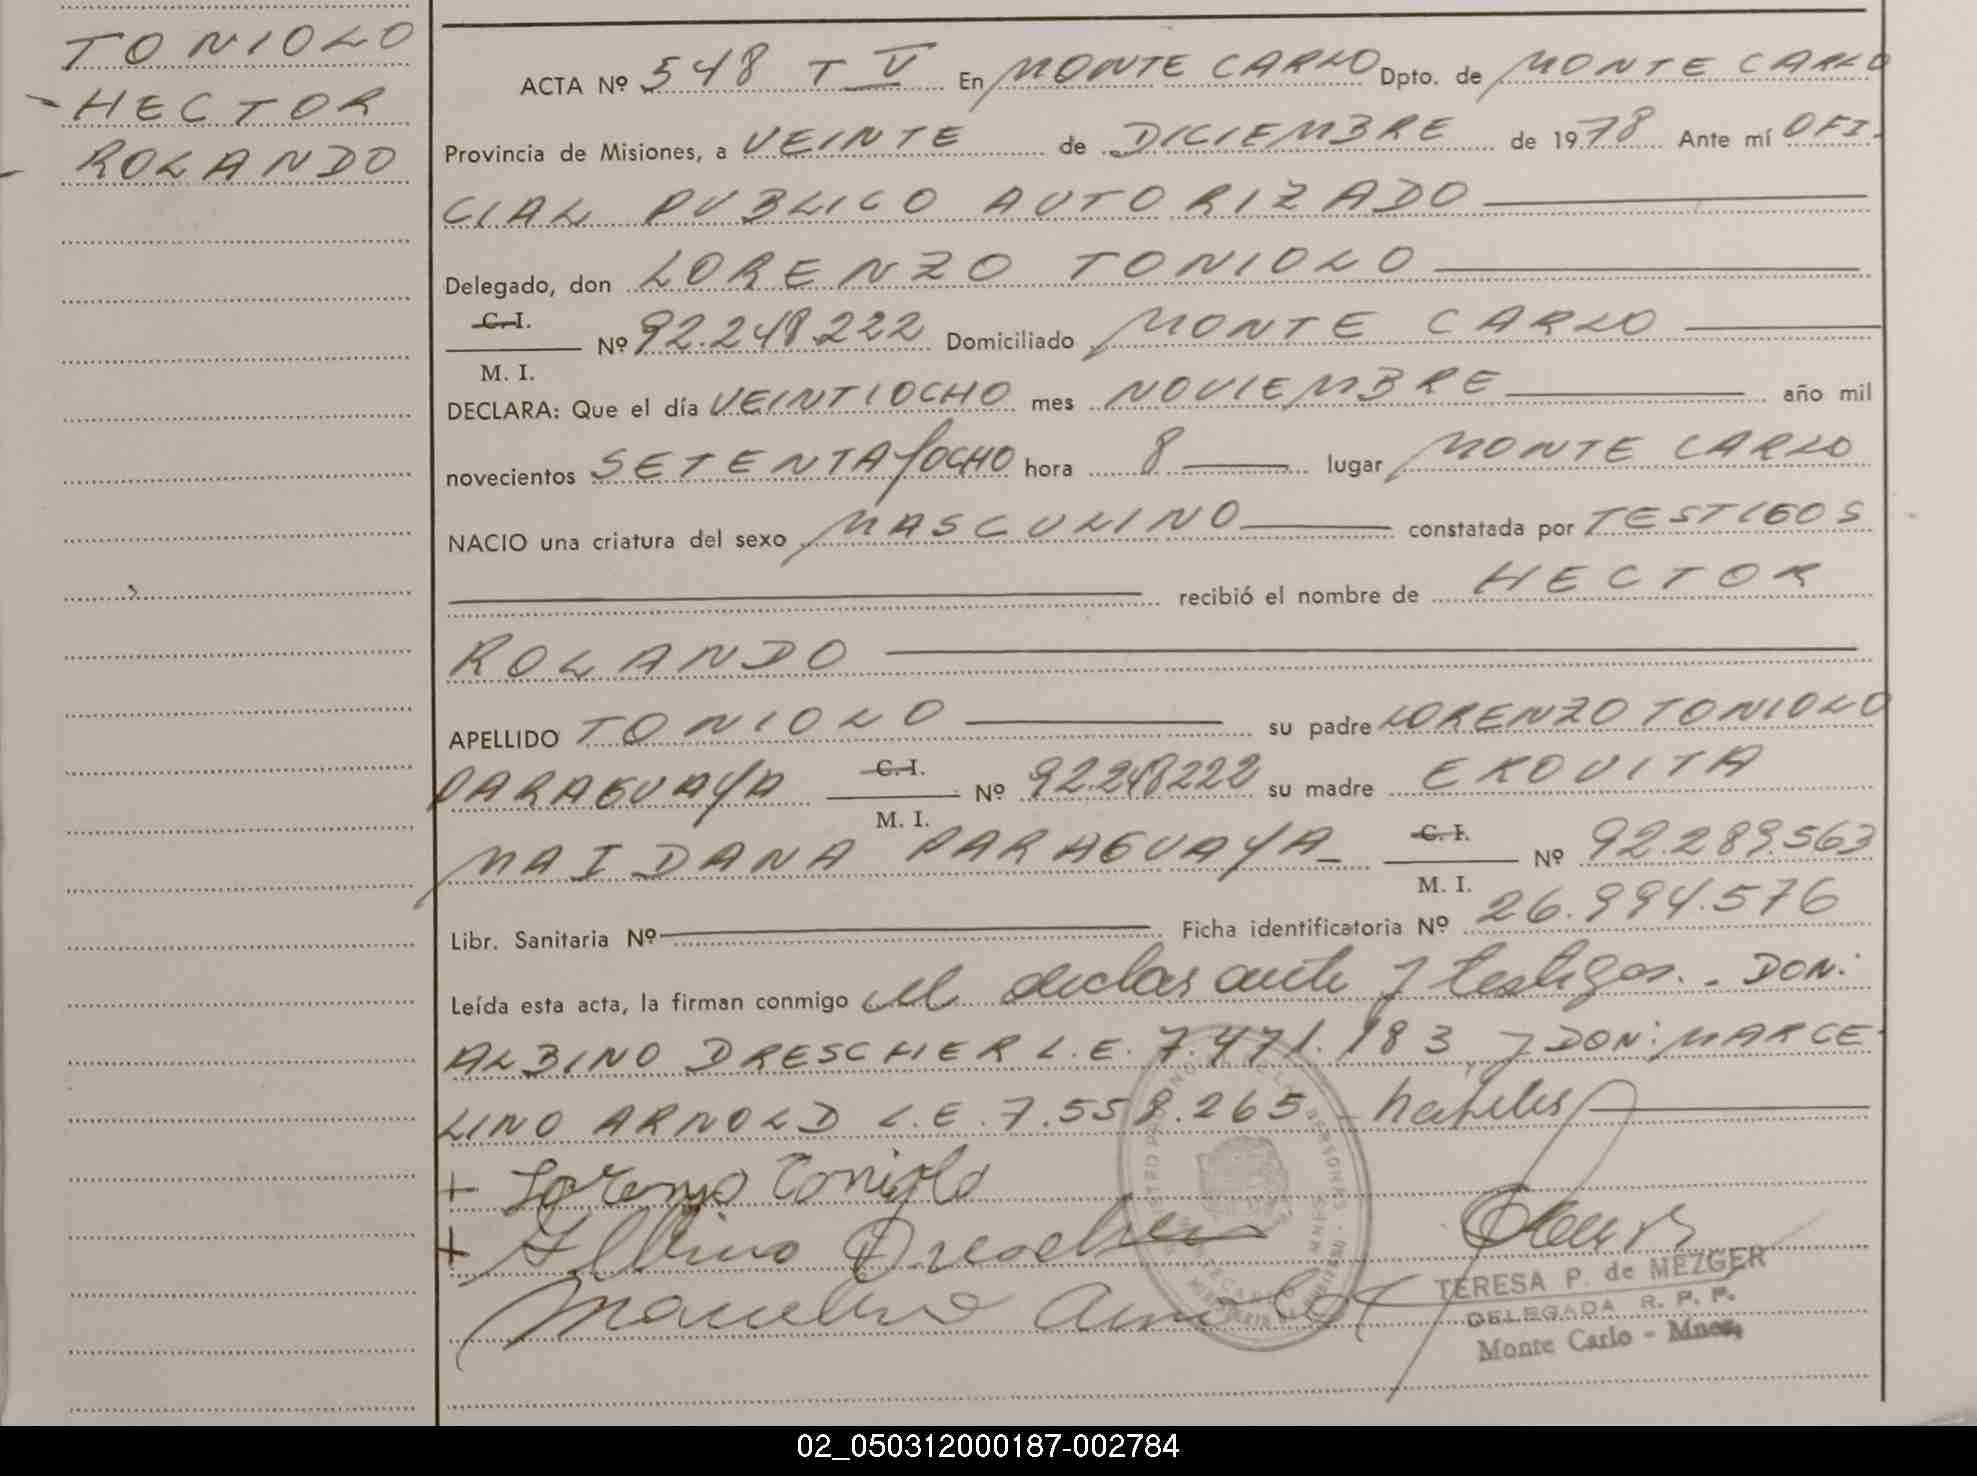 TONIOLO
HECTOR
ROLANDO
ACTA Nº 548 T V En MONTE CARLO Dpto. de MONTE CARLO
Provincia de Misiones, a VEINTE de DICIEMBRE de 1978 Ante mí OFI-
CIAL PUBLICO AUTORIZADO
Delegado, don LORENZO TONIOLO
C. I.
M. I. Nº 92.248.222 Domiciliado MONTE CARLO
DECLARA: Que el día VEINTIOCHO mes NOVIEMBRE año mil
novecientos SETENTA Y OCHO hora 8 lugar MONTE CARLO
NACIO una criatura del sexo MASCULINO constatada por TESTIGOS
recibió el nombre de HECTOR
ROLANDO
APELLIDO TONIOLO su padre LORENZO TONIOLO
PARAGUAYA C. I. M. I. Nº 92.248222 su madre EKOVITA
MAIDANA PARAGUAYA C. I. M. I. Nº 92.289.563
Libr. Sanitaria Nº Ficha identificatoria Nº 26.994.576
Leída esta acta, la firman conmigo el declarante y testigos.- DON:
ALBINO DRESCHER L.E. 7.471.183 y DON: MARCE-
LINO ARNOLD L.E. 7.558.265.- habiles
+ Lorenzo Toniolo
+ Albino Drescher
Marcelino Arnold
TERESA P. de MEZGER
DELEGADA R. P. P.
Monte Carlo - Mnes.
02_050312000187-002784